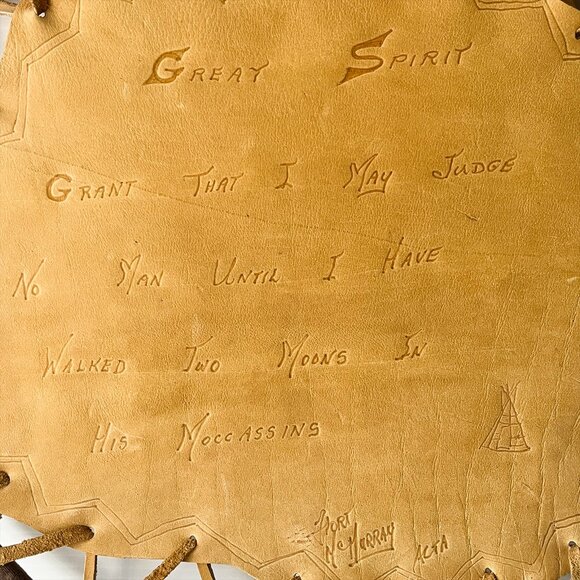 Great Spirit
Grant That I May Judge
No Man Until I Have
Walked Two Moons In
His Moccassins
Fort
McMurray Alta